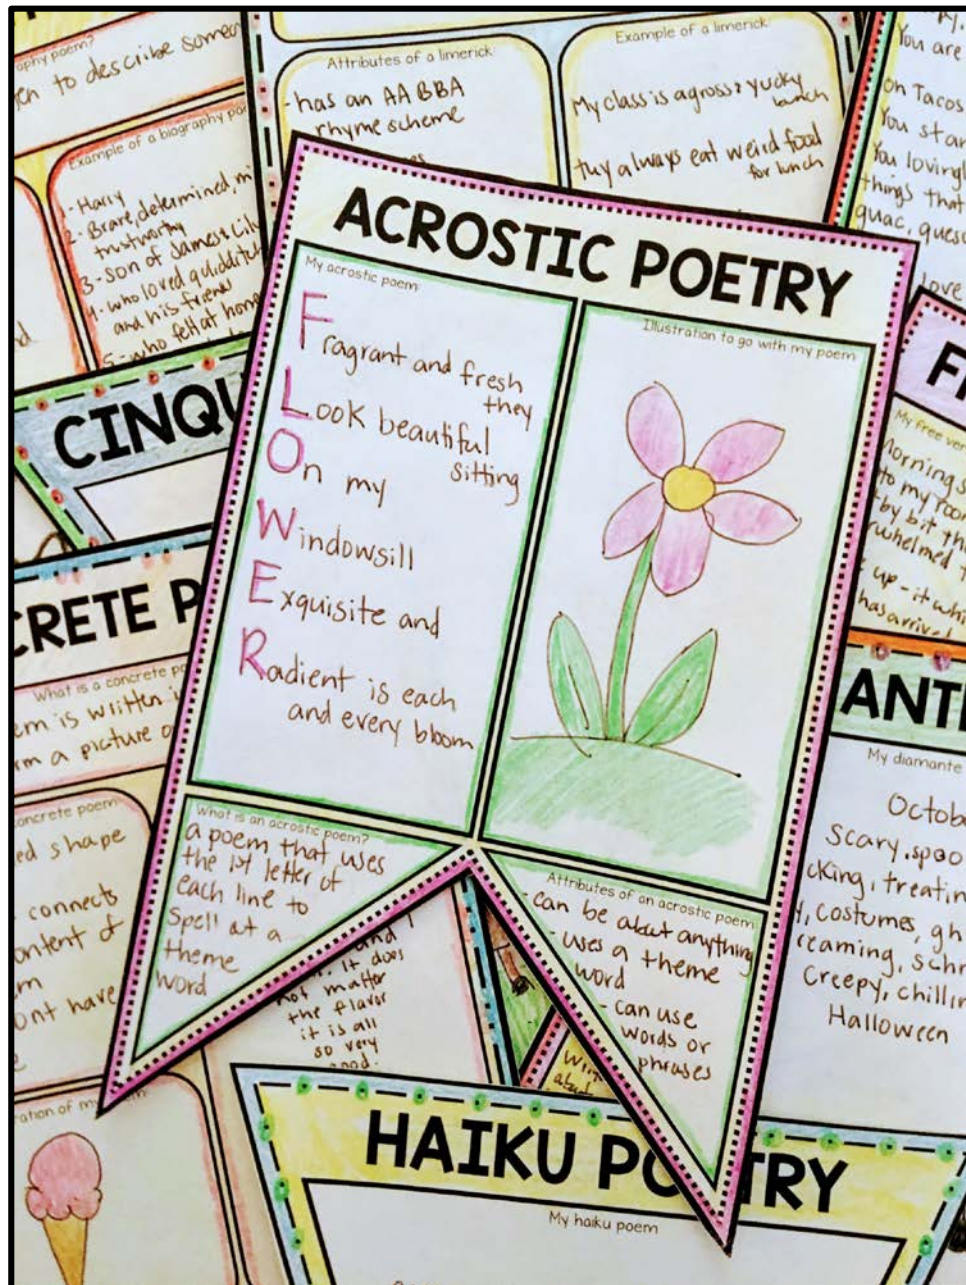 graphy poem?
to describe
Example of a biography
1- Harry
2- Brave, determined,
trustworthy
3- son of James &
4- who loved quidditch
and his friends
5- who felt at home
Attributes of a limerick:
- has an AABBA
rhyme scheme
Example of a limerick:
My class is a gross & yucky
bunch
they always eat weird food
for lunch
You are
on Tacos
You
You
things that
guac,
love
ACROSTIC POETRY
My acrostic poem:
Fragrant and fresh
they
Look beautiful
sitting
On my
Windowsill
Exquisite and
Radient is each
and every bloom
Illustration to go with my poem
What is an acrostic poem?
a poem that uses
the 1st letter of
each line to
spell at a
theme
word
Attributes of an acrostic poem
- can be about anything
- uses a theme
word
- can use
words or
phrases
CINQU
CRETE P
What is a concrete
is written
a picture
concrete poem
shape
connects
of
have
and I
it does
not matter
the flavor
it is all
so very
good.
of my
F
My free
Morning
to my room
by bit
up - it
has arrived
ANT
My diamante
Octob
scary, spoo
treatin
costumes, gh
Creepy, chillin
Halloween
HAIKU POETRY
My haiku poem